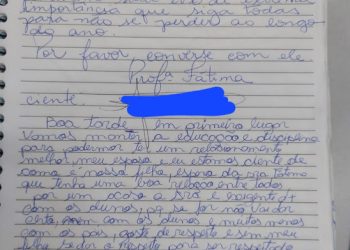 importância que siga todas
para não se perder ao longo
do ano.
Por favor, converse com ele.
Profª Fátima
ciente
Boa tarde, em primeiro lugar
Vamos manter a educação e disciplina
para podermos ter um relacionamento
melhor, meu esposo e eu estamos ciente de
como é nossa filha espero da sra Fatima
que tenha uma boa relação entre todos
por um acaso a sra é exigente
com os alunos, se for não vai dar
certo nem com os alunos e muitos menos
com os pais, goste de respeito e sem meu